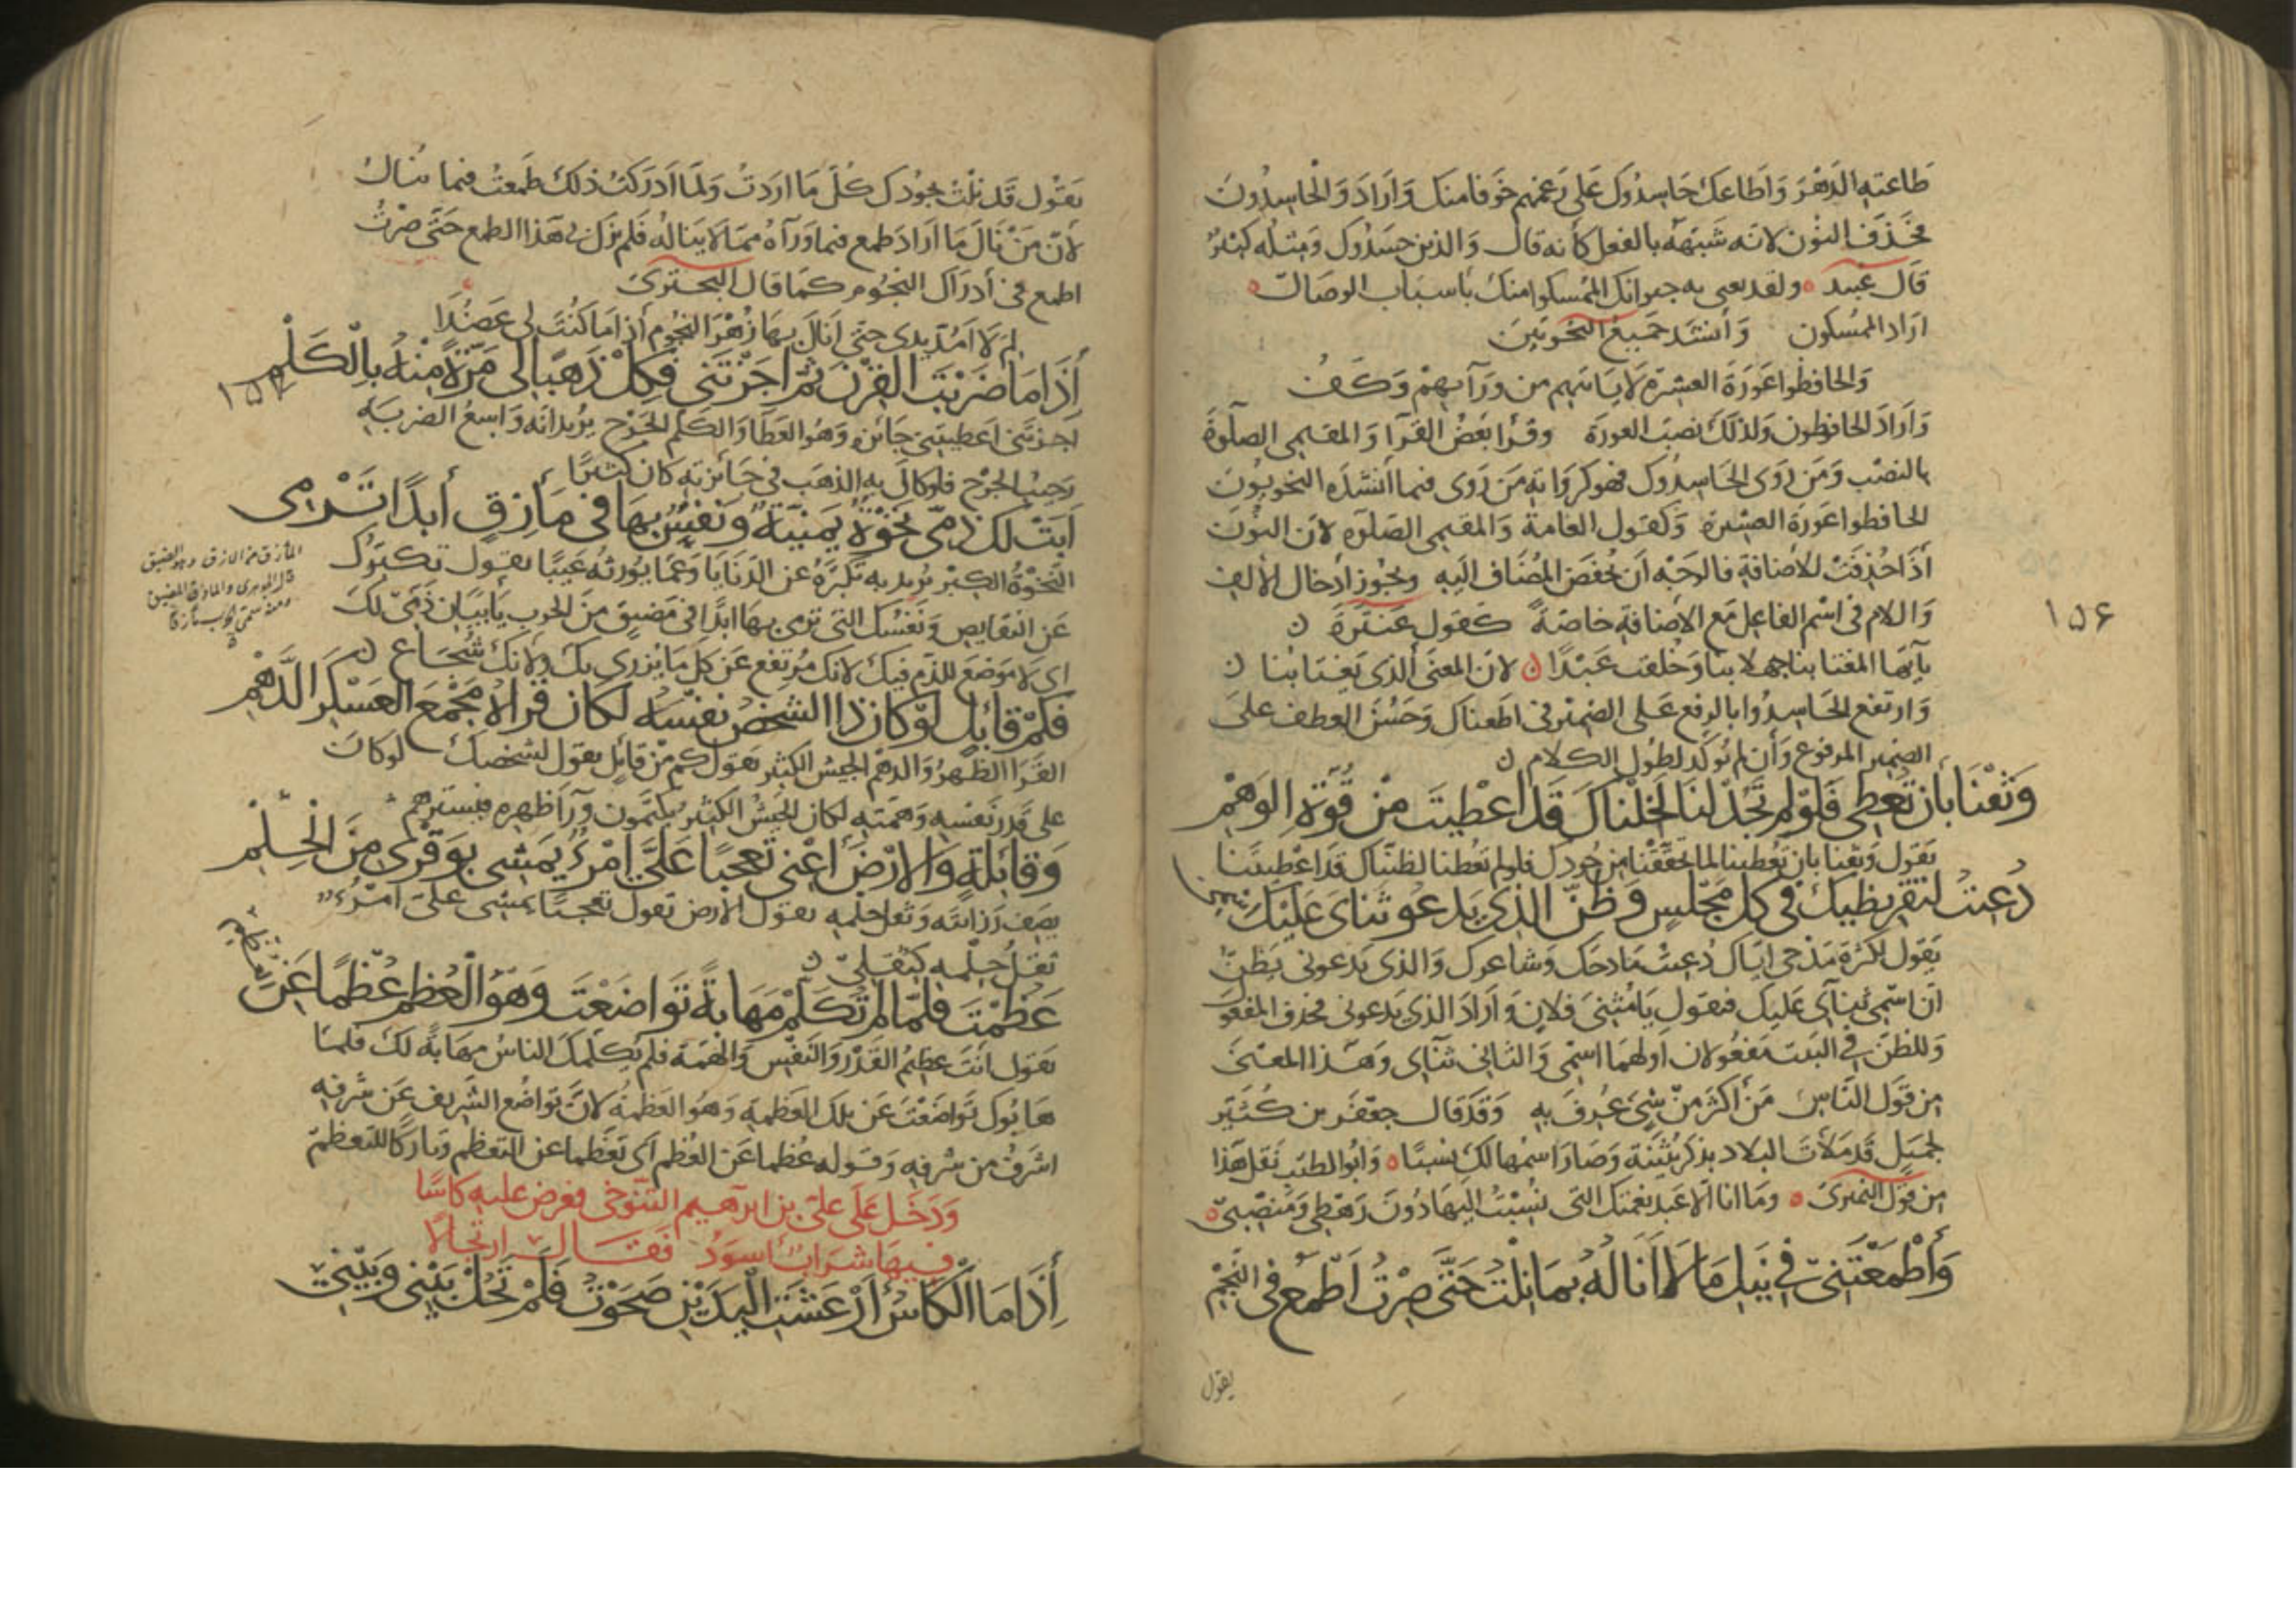 طاعته الدهر واطاعك حاسدوك على رغمهم خوفا منك واراد والحاسدون
فحذف النون لانه شبهه بالفعل كأنه قال والذين حسدوك ومثله كثير
قال عبيد ولقد يغنى به جيرانك الممسكوا منك بأسباب الوصال
اراد الممسكون وأنشد جميع النحويين
والحافظوا عورة العشيرة لا يأتيهم من ورآيهم وكف
واراد الحافظون ولذلك نصب العورة وقرأ بعض القرآ والمقيمي الصلوة
بالنصب ومن روى الحاسدوك فهو كرواية من روى فيما أنشده النحويون
الحافظوا عورة العشيرة وكقول العامة والمقيمي الصلوه لان النون
أذا حذفت للأضافة فالوجه ان يخفض المضاف اليه ويجوز أدخال الألف
واللام في اسم الفاعل مع الأضافة خاصة كقول عنترة
يآيها المغتابنا جهلا بنا وخلقت عبدا لان المعنى ألذي يغتابنا
وارتفع الحاسدوا بالرفع على الضمير في اطعناك وحسن العطف على
الضمير المرفوع وأن لم يوكد لطول الكلام
وثقنا بأن تعطي فلو لم تجد لنا لخلناك قد اعطيت من قوة الوهم
يقول وثقنا بان تعطينا لما تحققنا من جودك فلو لم تعطنا لظنناك قد اعطيتنا
دعيت لتقريظيك في كل مجلس وظن الذي يدعو ثناي عليك اسمي
يقول لكثرة مدحي اياك دعيت مادحك وشاعرك والذي يدعوني يظن
ان اسمي ثنآي عليك فيقول يا مثني فلان واراد الذي يدعوني فحذف المفعو
وللظن في البيت مفعولان اولهما اسمي والثاني ثنآي وهذا المعنى
من قول الناس من أكثر من شيء عرف به وقد قال جعفر بن كثير
لجميل قد ملأت البلاد بذكر بثينة وصار اسمها لك نسبا وابو الطيب نقل هذا
من قول النميري وما انا الا عبد نعمتك التي نسبت اليها دون رهطي ومنصبي
وأطمعتني في نيل ما لا أناله بما نلت حتى صرت اطمع في النجم
يقول
١٥٦
يقول قد نلت بجودك كل ما اردت ولما ادركت ذلك طمعت فيما لا ينال
لأن من نال ما اراد طمع فيما ورآه مما لا يناله فلم يزل بي هذا الطمع حتى صرت
اطمع في أدراك النجوم كما قال البحتري
لم لا امد يدي حتى أنال بها زهر النجوم أذا ما كنت لي عضدا
أذا ما ضربت القرن ثم اجزتني فكل ذهبا لي مرة منه بالكلم
اجزتني اعطيتني جائزة وهو العطا والكلم الجرح يريد انه واسع الضربة
رحيب الجرح فلو كال به الذهب في جائزته كان كثيرا
أبت لك ذمي نخوة يمنية ونفس بها في مأزق أبدا ترمي
النخوة الكبر يريد به تكبره عن الدنايا وعما يورثه عيبا يقول تكبرك
عن النقايص ونفسك التي ترمي بها ابدا في مضيق من الحرب يأبيان ذمي لك
اي لا موضع للذم فيك لانك مرتفع عن كل ما يزري بك ولانك شجاع
فكم قائل لو كان ذا الشخص نفسه لكان قراه مجمع العسكر الدهم
القرا الظهر والدهم الجيش الكثير يقول كم من قائل يقول لشخصك لو كان
على قدر نفسه وهمته لكان الجيش الكثير يكمنون ورآ ظهره فيسترهم
وقائلة والارض أعني تعجبا علي امرؤ يمشي بوقري من الحلم
يصف رزانته وثقل حلمه يقول الارض تقول تعجبا يمشي علي امرؤ
ثقل حلمه كثقلي
عظمت فلما لم تكلم مهابة تواضعت وهو العظم عظما عن العظم
يقول انت عظيم القدر والنفس والهمة فلم يكلمك الناس مهابة لك فلما
هابوك تواضعت عن تلك العظمة وهو العظمة لان تواضع الشريف عن شرفه
اشرف من شرفه وقوله عظما عن العظم أي تعظما عن التعظم وتاركا للتعظم
ودخل على علي بن ابرهيم التنوخي فعرض عليه كاسا
فيها شراب اسود فقال ارتجالا
أذا ما الكأس أرعشت اليدين صحوت فلم تحل بيني وبيني
المأزق من الازق وهو الضيق
قال الجوهري والمأزق المضيق
ومنه سمي الحرب مأزقا